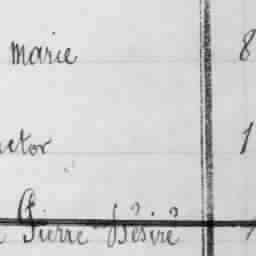 Marie 8
ctor 1
Pierre Désiré